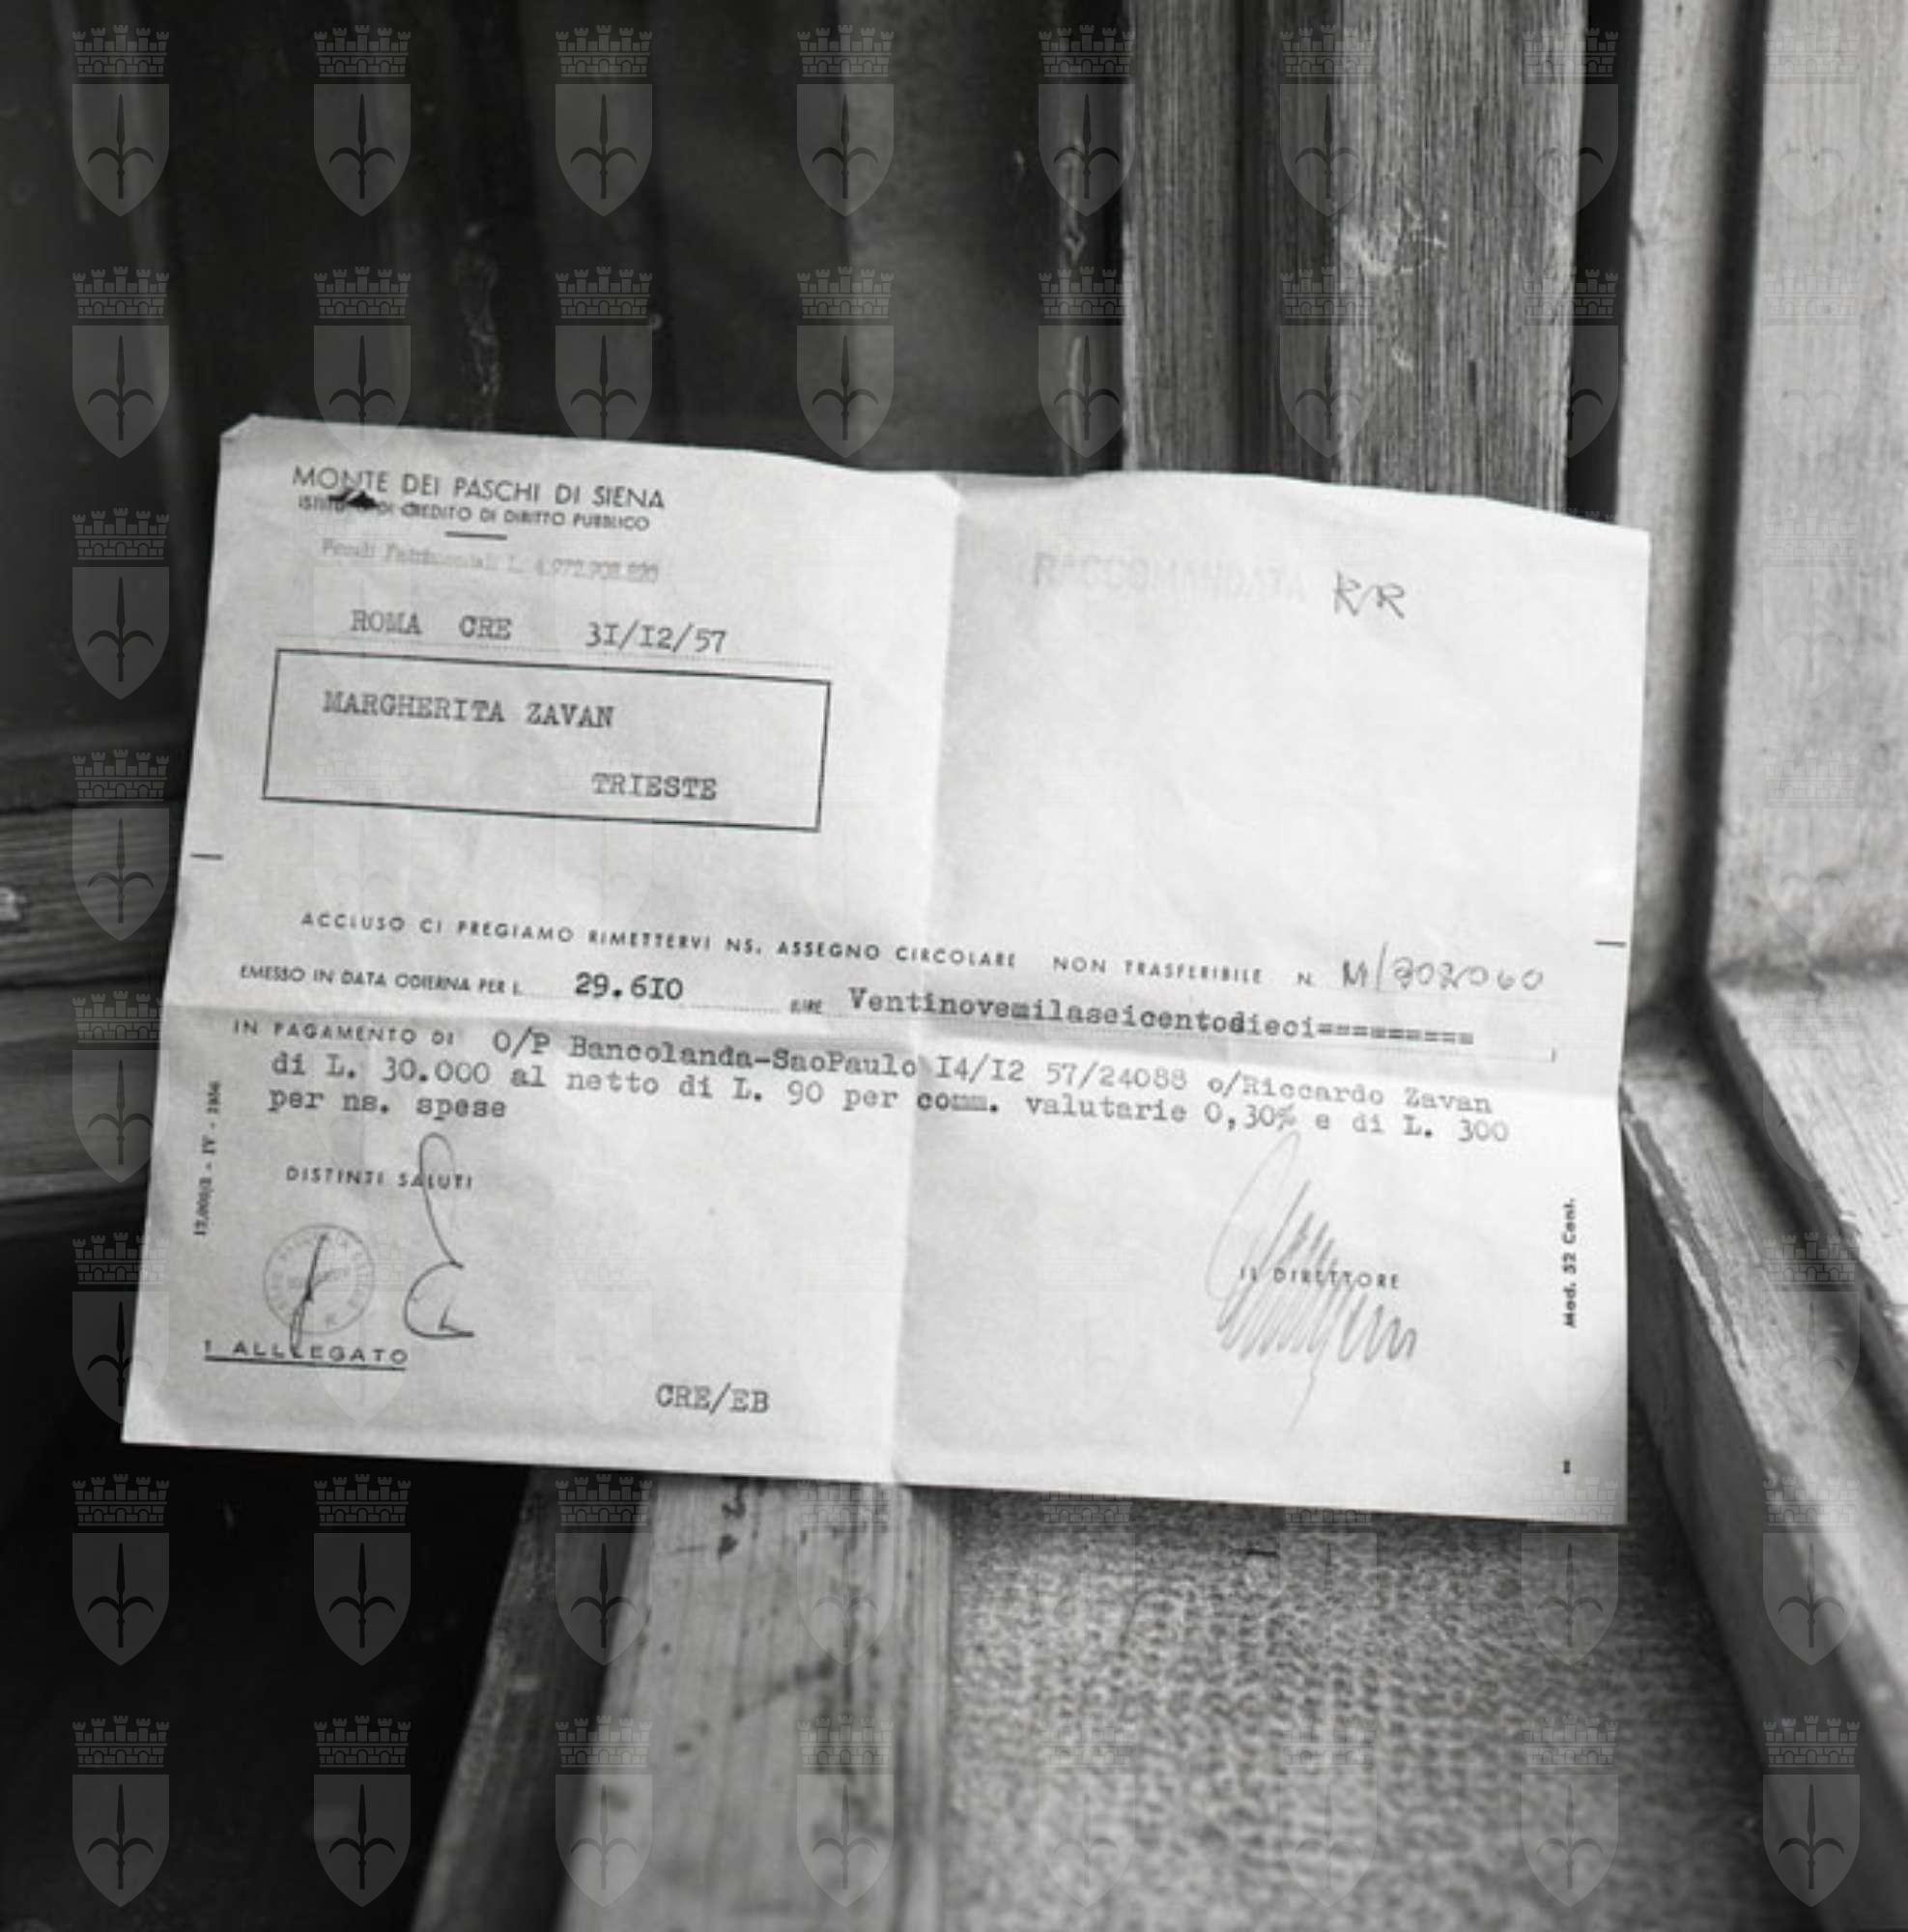 MONTE DEI PASCHI DI SIENA
ISTITUTO DI CREDITO DI DIRITTO PUBBLICO
Fondi Patrimoniali L. 4.972.908.820
RACCOMANDATA RR
ROMA CRE 3I/I2/57
MARGHERITA ZAVAN
TRIESTE
ACCLUSO CI PREGIAMO RIMETTERVI NS. ASSEGNO CIRCOLARE NON TRASFERIBILE N. M/302060
EMESSO IN DATA ODIERNA PER L. 29.6I0 LIRE Ventinovemilaseicentodieci=========
IN PAGAMENTO DI O/P Bancolanda-SaoPaulo I4/I2 57/24088 o/Riccardo Zavan
di L. 30.000 al netto di L. 90 per comm. valutarie 0,30% e di L. 300
per ns. spese
DISTINTI SALUTI
IL DIRETTORE
1 ALLEGATO
CRE/EB
Mod. 52 Cont.